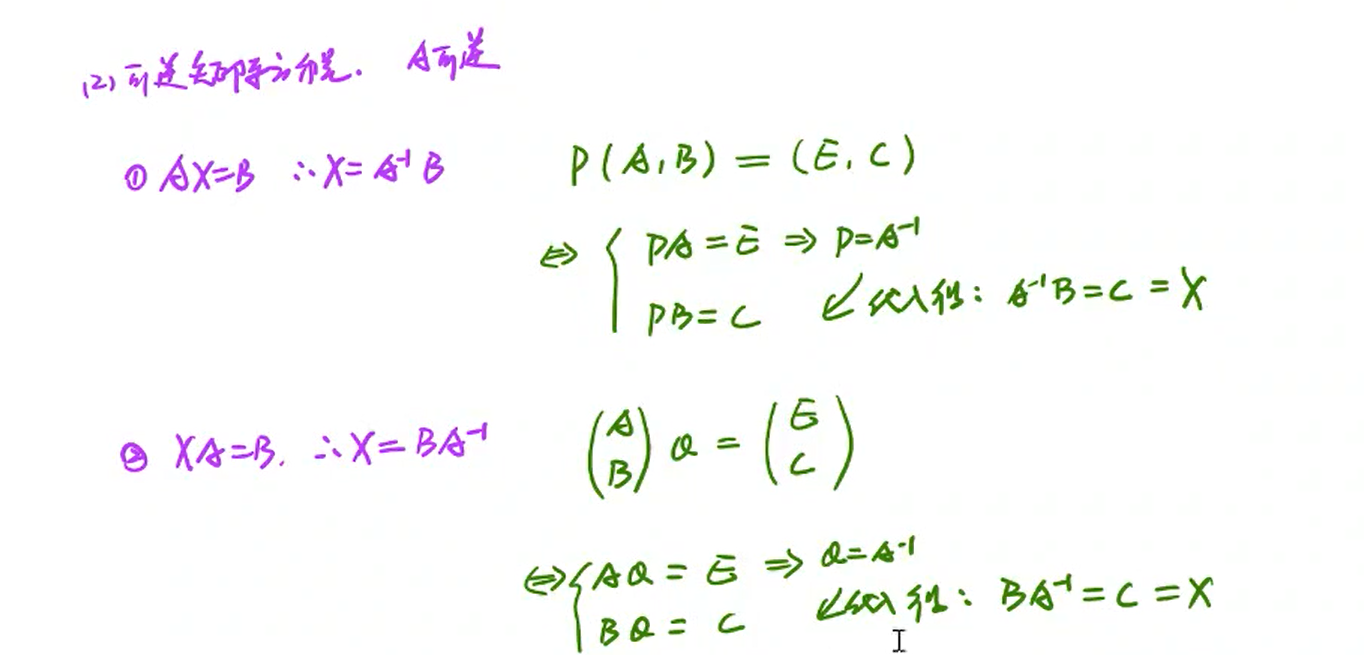 (2) 可逆矩阵方程. A可逆
① AX=B ∴X=A⁻¹B P(A,B)=(E,C)
⇔ { PA=E ⇒ P=A⁻¹
PB=C ↙代入得: A⁻¹B=C=X
② XA=B. ∴X=BA⁻¹ (A B) Q = (E C)
⇔ { AQ=E ⇒ Q=A⁻¹
BQ=C ↙代入得: BA⁻¹=C=X